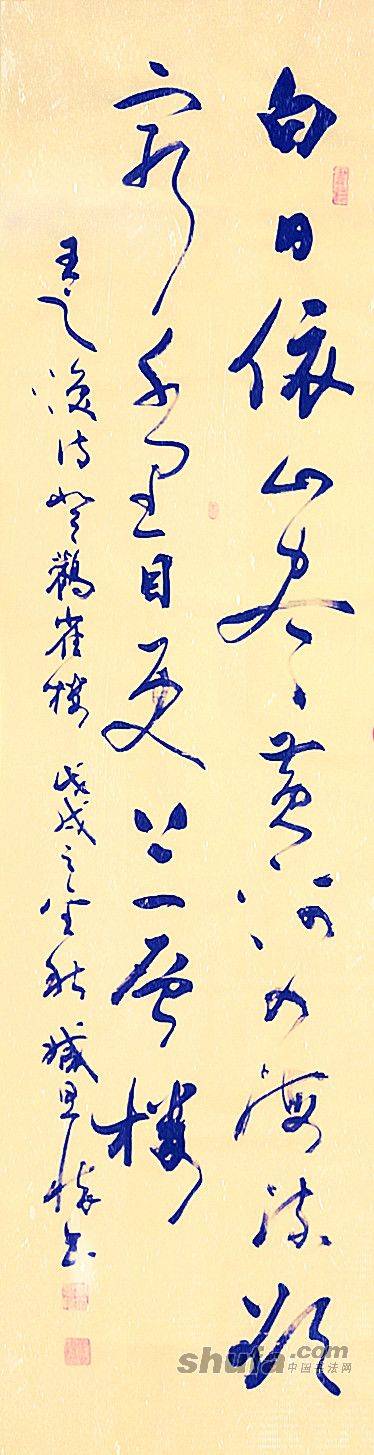 白日依山尽黄河入海流欲
穷千里目更上一层楼
王之涣诗登鹳雀楼 戊戌之金秋 书
shufa.com
中国书法网